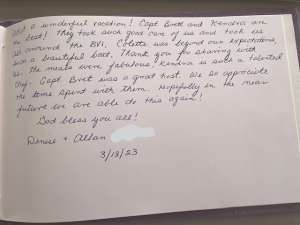 What a wonderful vacation! Capt Brett and Kendra are
the best! They took such good care of us and took us
all around the BVI's, Colette was beyond our expectations,
such a beautiful boat. Thank you for sharing with
us. The meals were fabulous. Kendra is such a talented
chef. Capt. Brett was a great host. We so appreciate
the time spent with them. Hopefully in the near
future we are able do this again!
God bless you all!
Denise + Allan
3/13/23